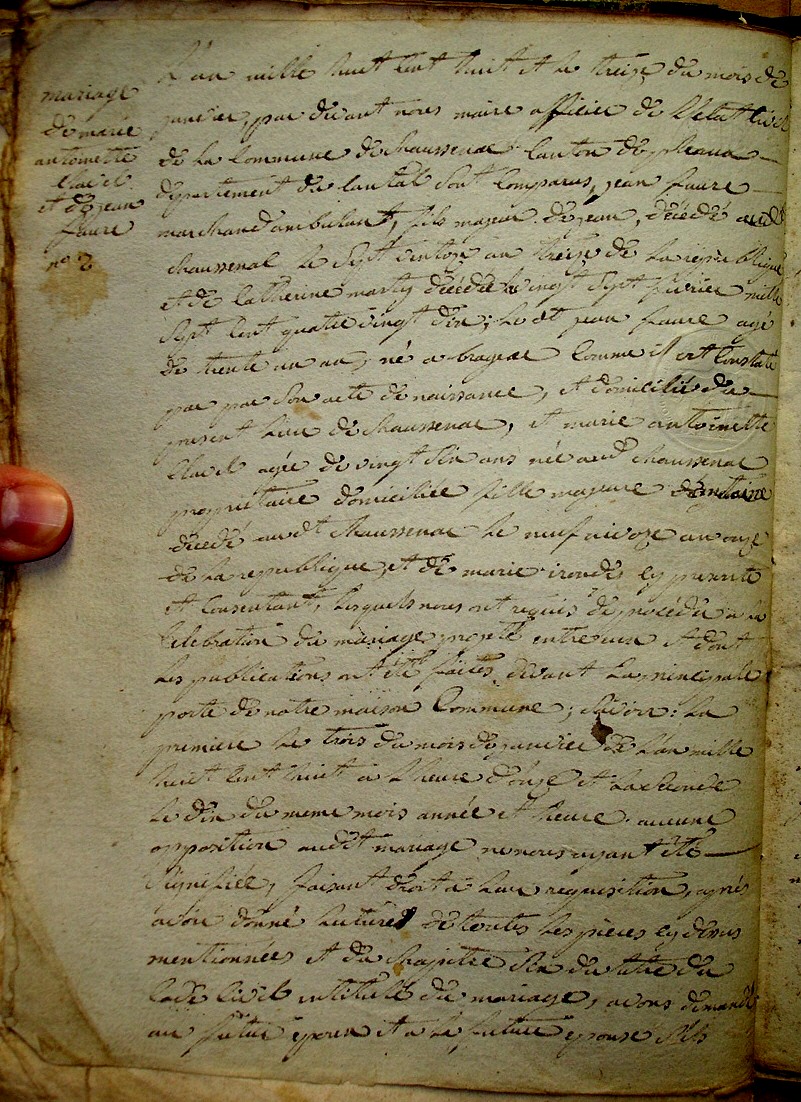 mariage
de marie
antoinette
Clavel
et de jean
faure
n° 2
L'an mille huit cent huit et le treize du mois de
janvier, par devant nous maire officier de l'etat civil
de la commune de chaussenac canton de pleaux
departement du cantal sont comparus, jean faure
marchand ambulant, fils majeur de jean, décédé audt
chaussenac le sept ventose an treize de la republique
et de catherine marty décédée le vingt sept fevrier mille
sept cent quatre vingt dix; le dt jean faure agé
de trente un an, né a brageac comme il est constaté
par par son acte de naissance, et domicilié du
present lieu de chaussenac, et marie antoinette
Clavel agée de vingt six ans née audt chaussenac
propriétaire domiciliée fille majeure d'antoine
décédé audt chaussenac le neuf nivose an onze
de la republique, et de marie irondes cy presente
et consentant, lesquels nous ont requis de procéder a la
celebration du mariage projetté entre eux et dont
les publications ont été faites devant la principale
porte de notre maison commune; savoir: la
premiere le trois du mois de janvier de l'an mille
huit cent huit a l'heure d'onze et la seconde
le dix du meme mois année et heure. aucune
opposition audit mariage ne nous ayant été
signifiée, faisant droit a leur requisition, après
avoir donné lecture de toutes les pièces cy dessus
mentionnées et du chapitre six du titre du
code civil intitullé du mariage, avons demandé
au futur epoux et a la future epouse s'ils